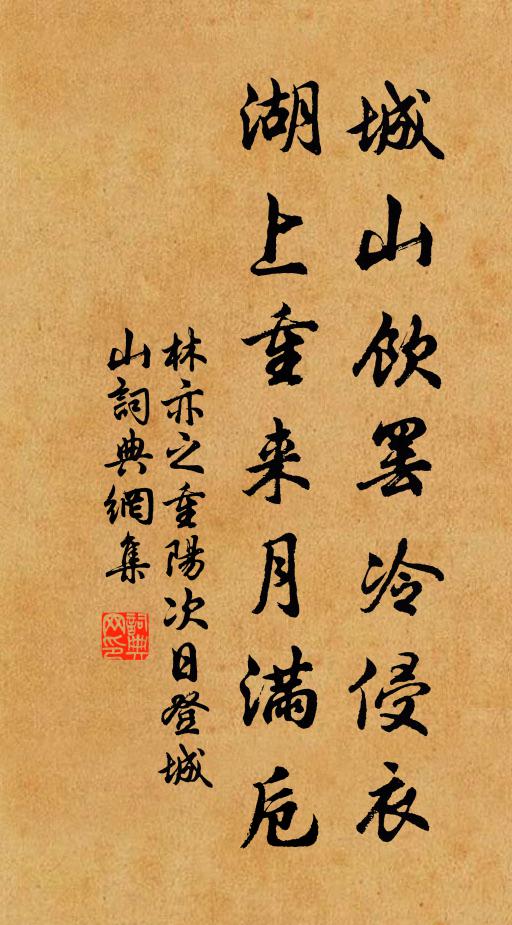 城山飲罷冷侵衣
湖上重来月滿卮
林亦之重陽次日登城
山詞典網集
詞典
网印